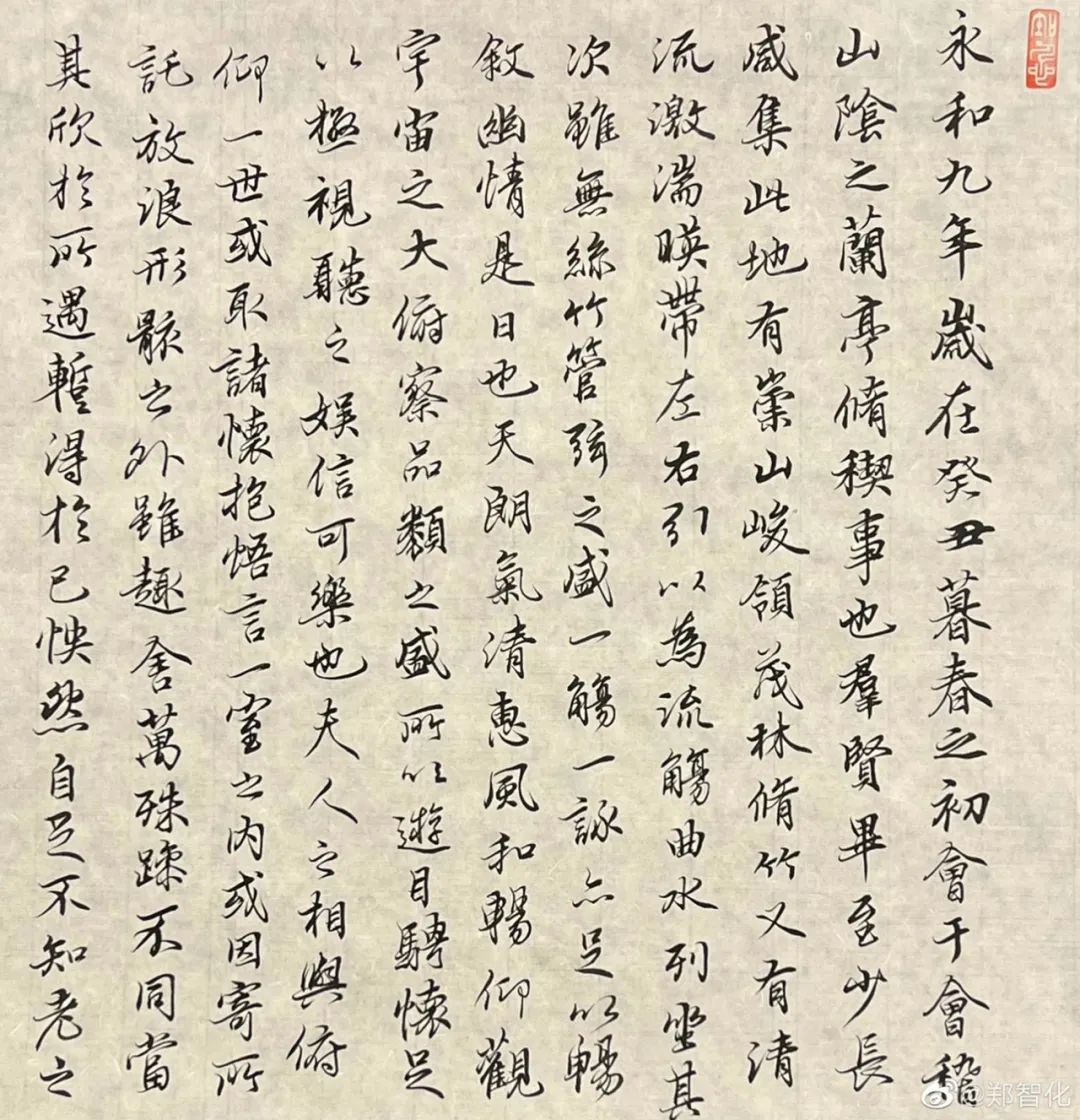 永和九年歲在癸丑暮春之初會于會稽
山陰之蘭亭脩稧事也羣賢畢至少長
咸集此地有崇山峻領茂林脩竹又有清
流激湍暎帶左右引以為流觴曲水列坐其
次雖無絲竹管弦之盛一觴一詠亦足以暢
敘幽情是日也天朗氣清惠風和暢仰觀
宇宙之大俯察品類之盛所以遊目騁懷足
以極視聽之娛信可樂也夫人之相與俯
仰一世或取諸懷抱悟言一室之內或因寄所
託放浪形骸之外雖趣舍萬殊躁不同當
其欣於所遇暫得於己怏然自足不知老之
@郑智化